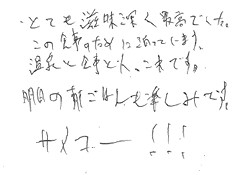 ・とても滋味深く最高でした。
この食事のために泊っています。
温泉と食事と人、これです。
明日の朝ごはんも楽しみです。
サメユー!!!